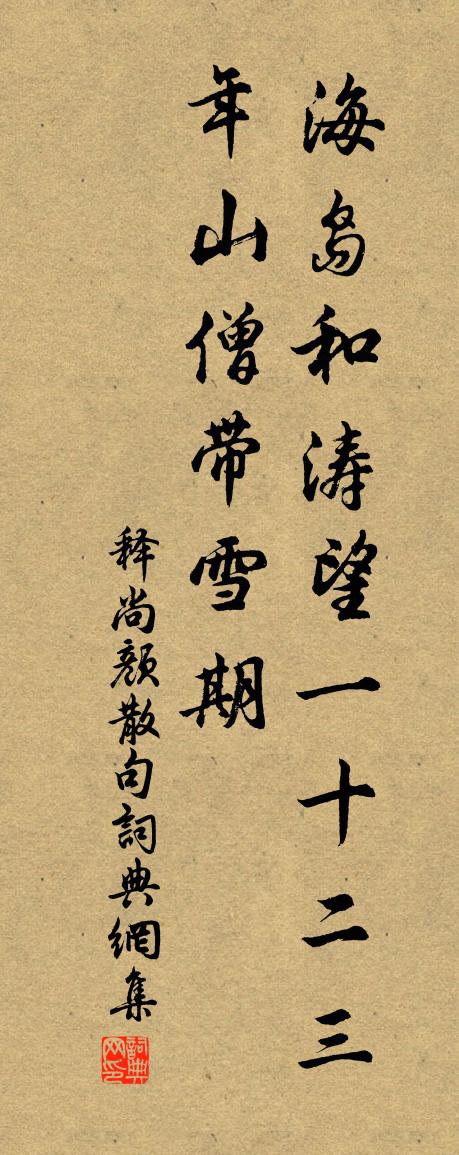 海島和濤望一十二三
年山僧帶雪期
释尚顏散句詞典網集
詞典网印